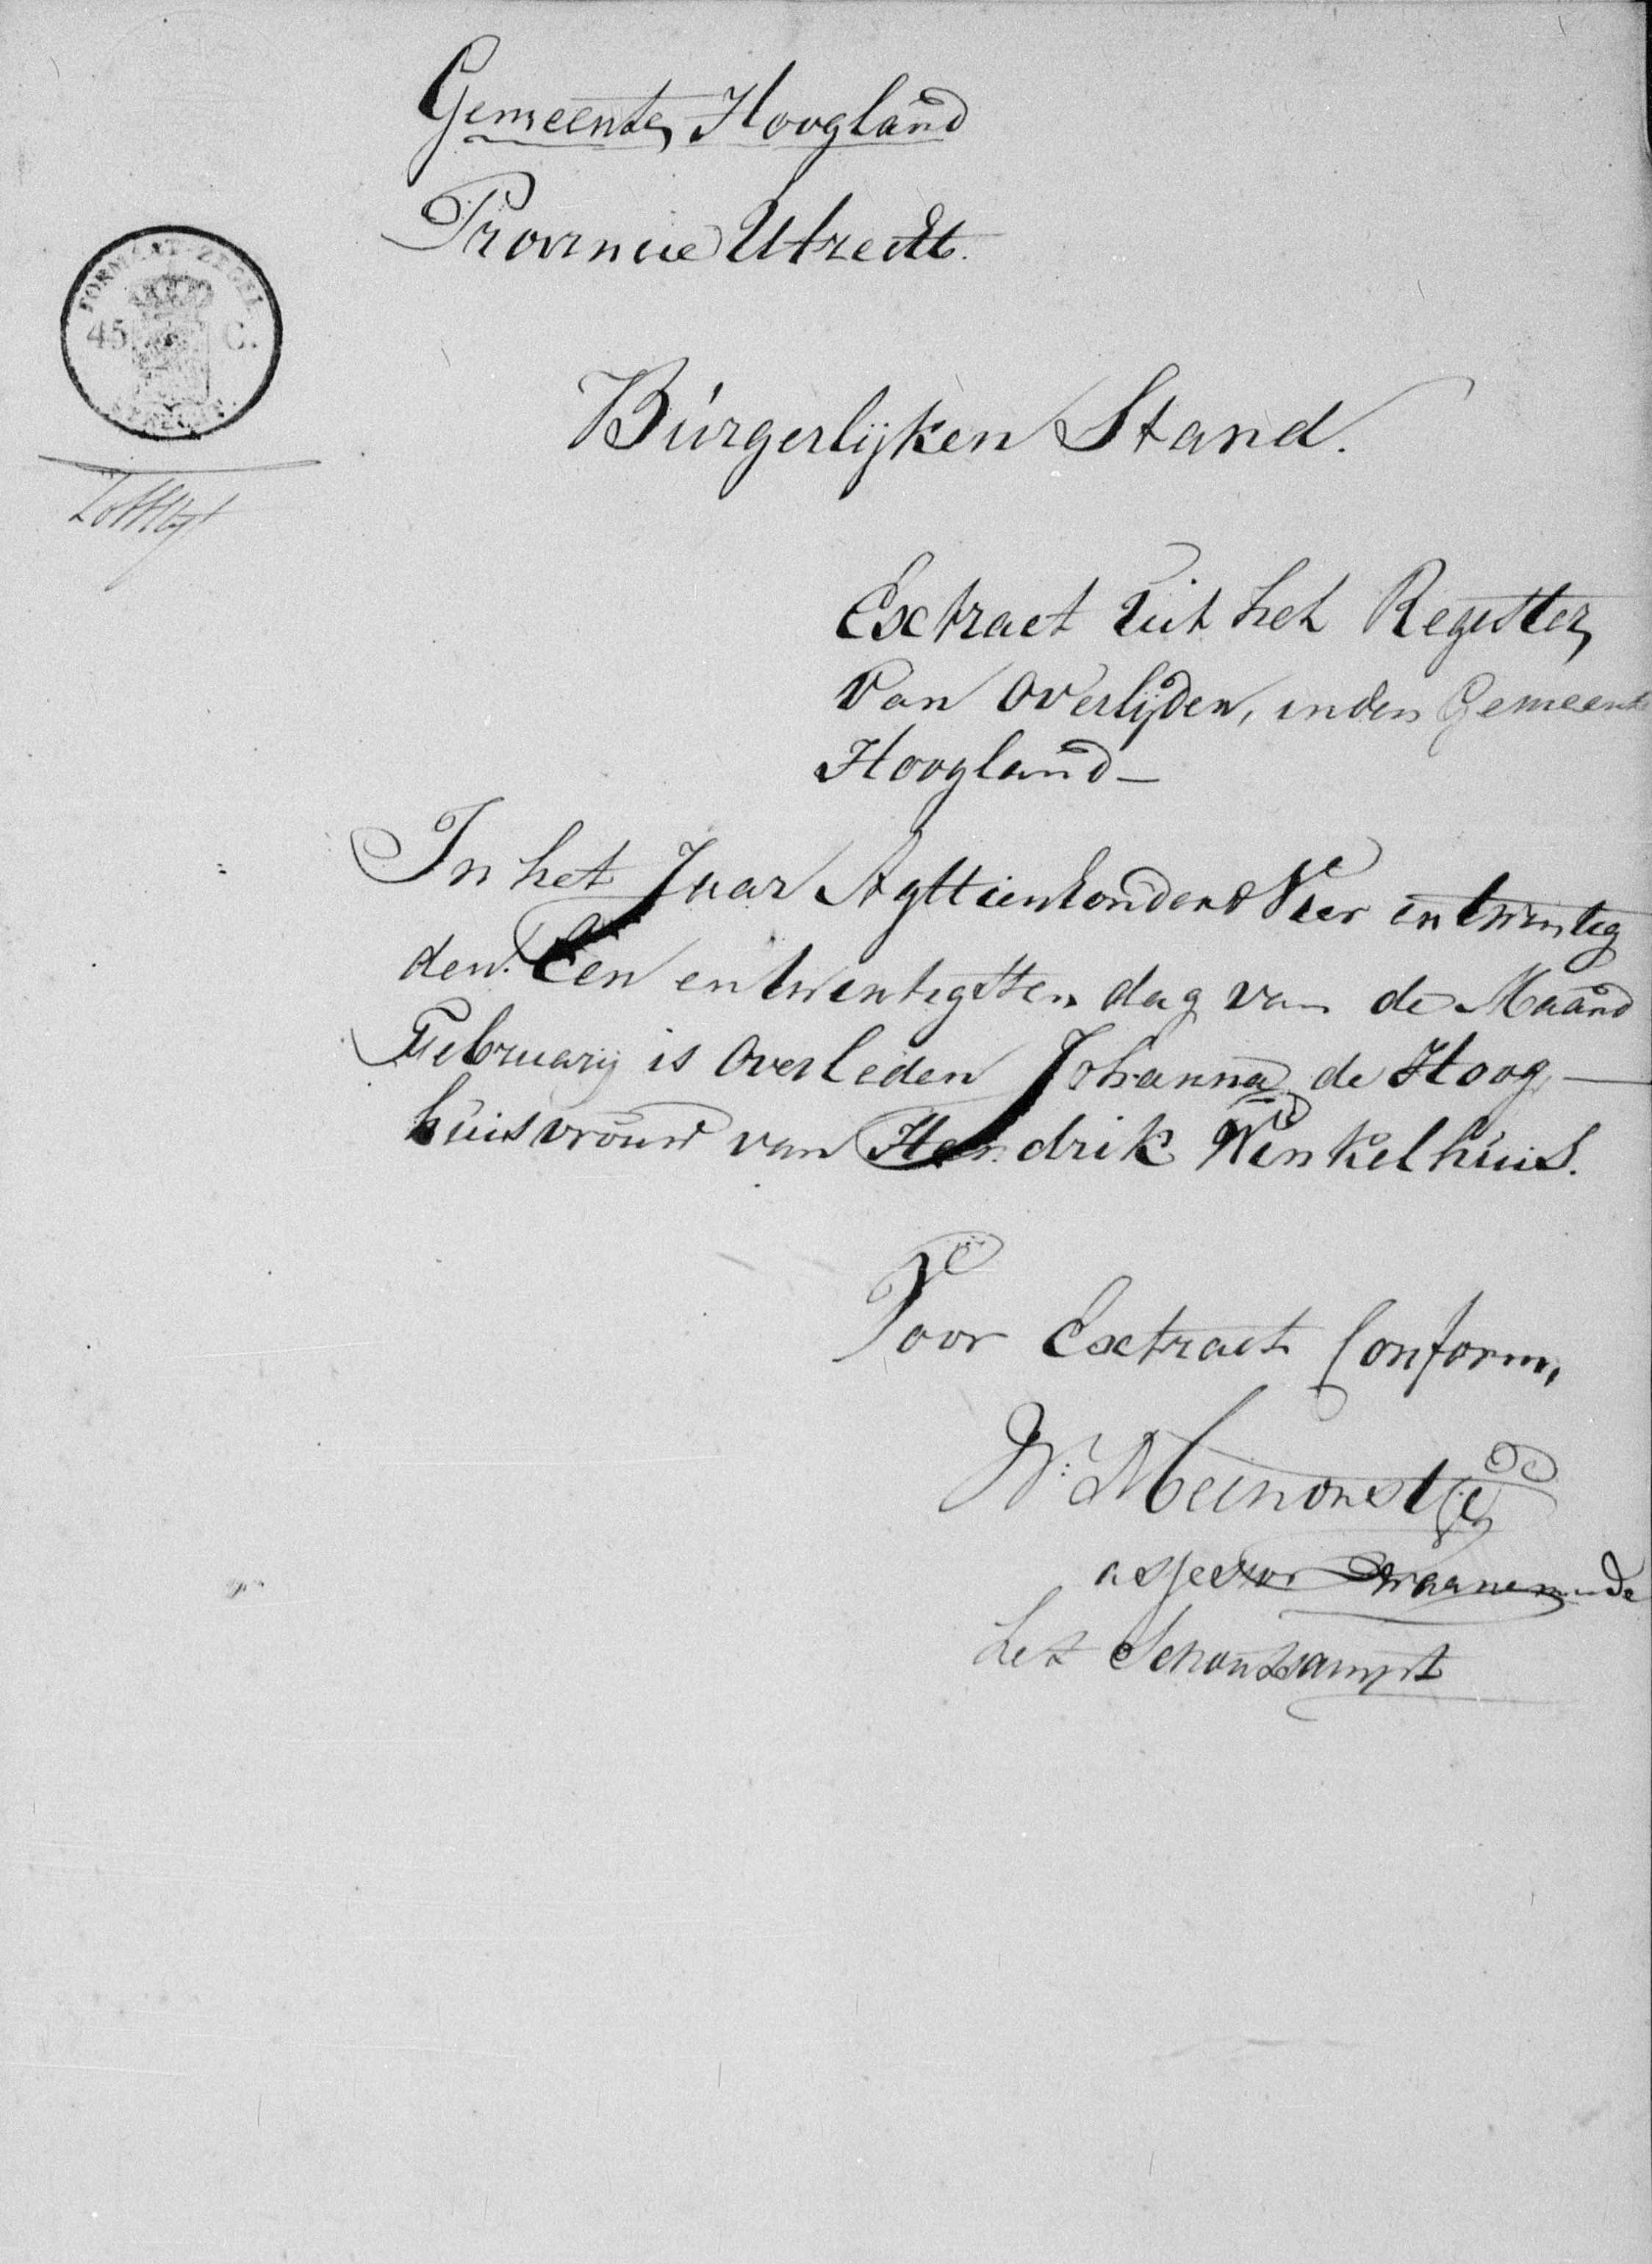 Gemeente Hoogland
Provincie Utrecht.
FORMAAT-ZEGEL
45 C.
UTRECHT.
Burgerlijken Stand.
Extract uit het Register
van overlijden, inden Gemeente
Hoogland —
In het Jaar Agttienhondert Vier en twintig
den Eén en twentigsten dag van de Maand
February is overleden Johanna de Hoog, —
huisvrouw van Hendrik Winkelhuis.
Voor Extract Conform,
W: Meinonst
assessor waarnemende
het Schoutsampt